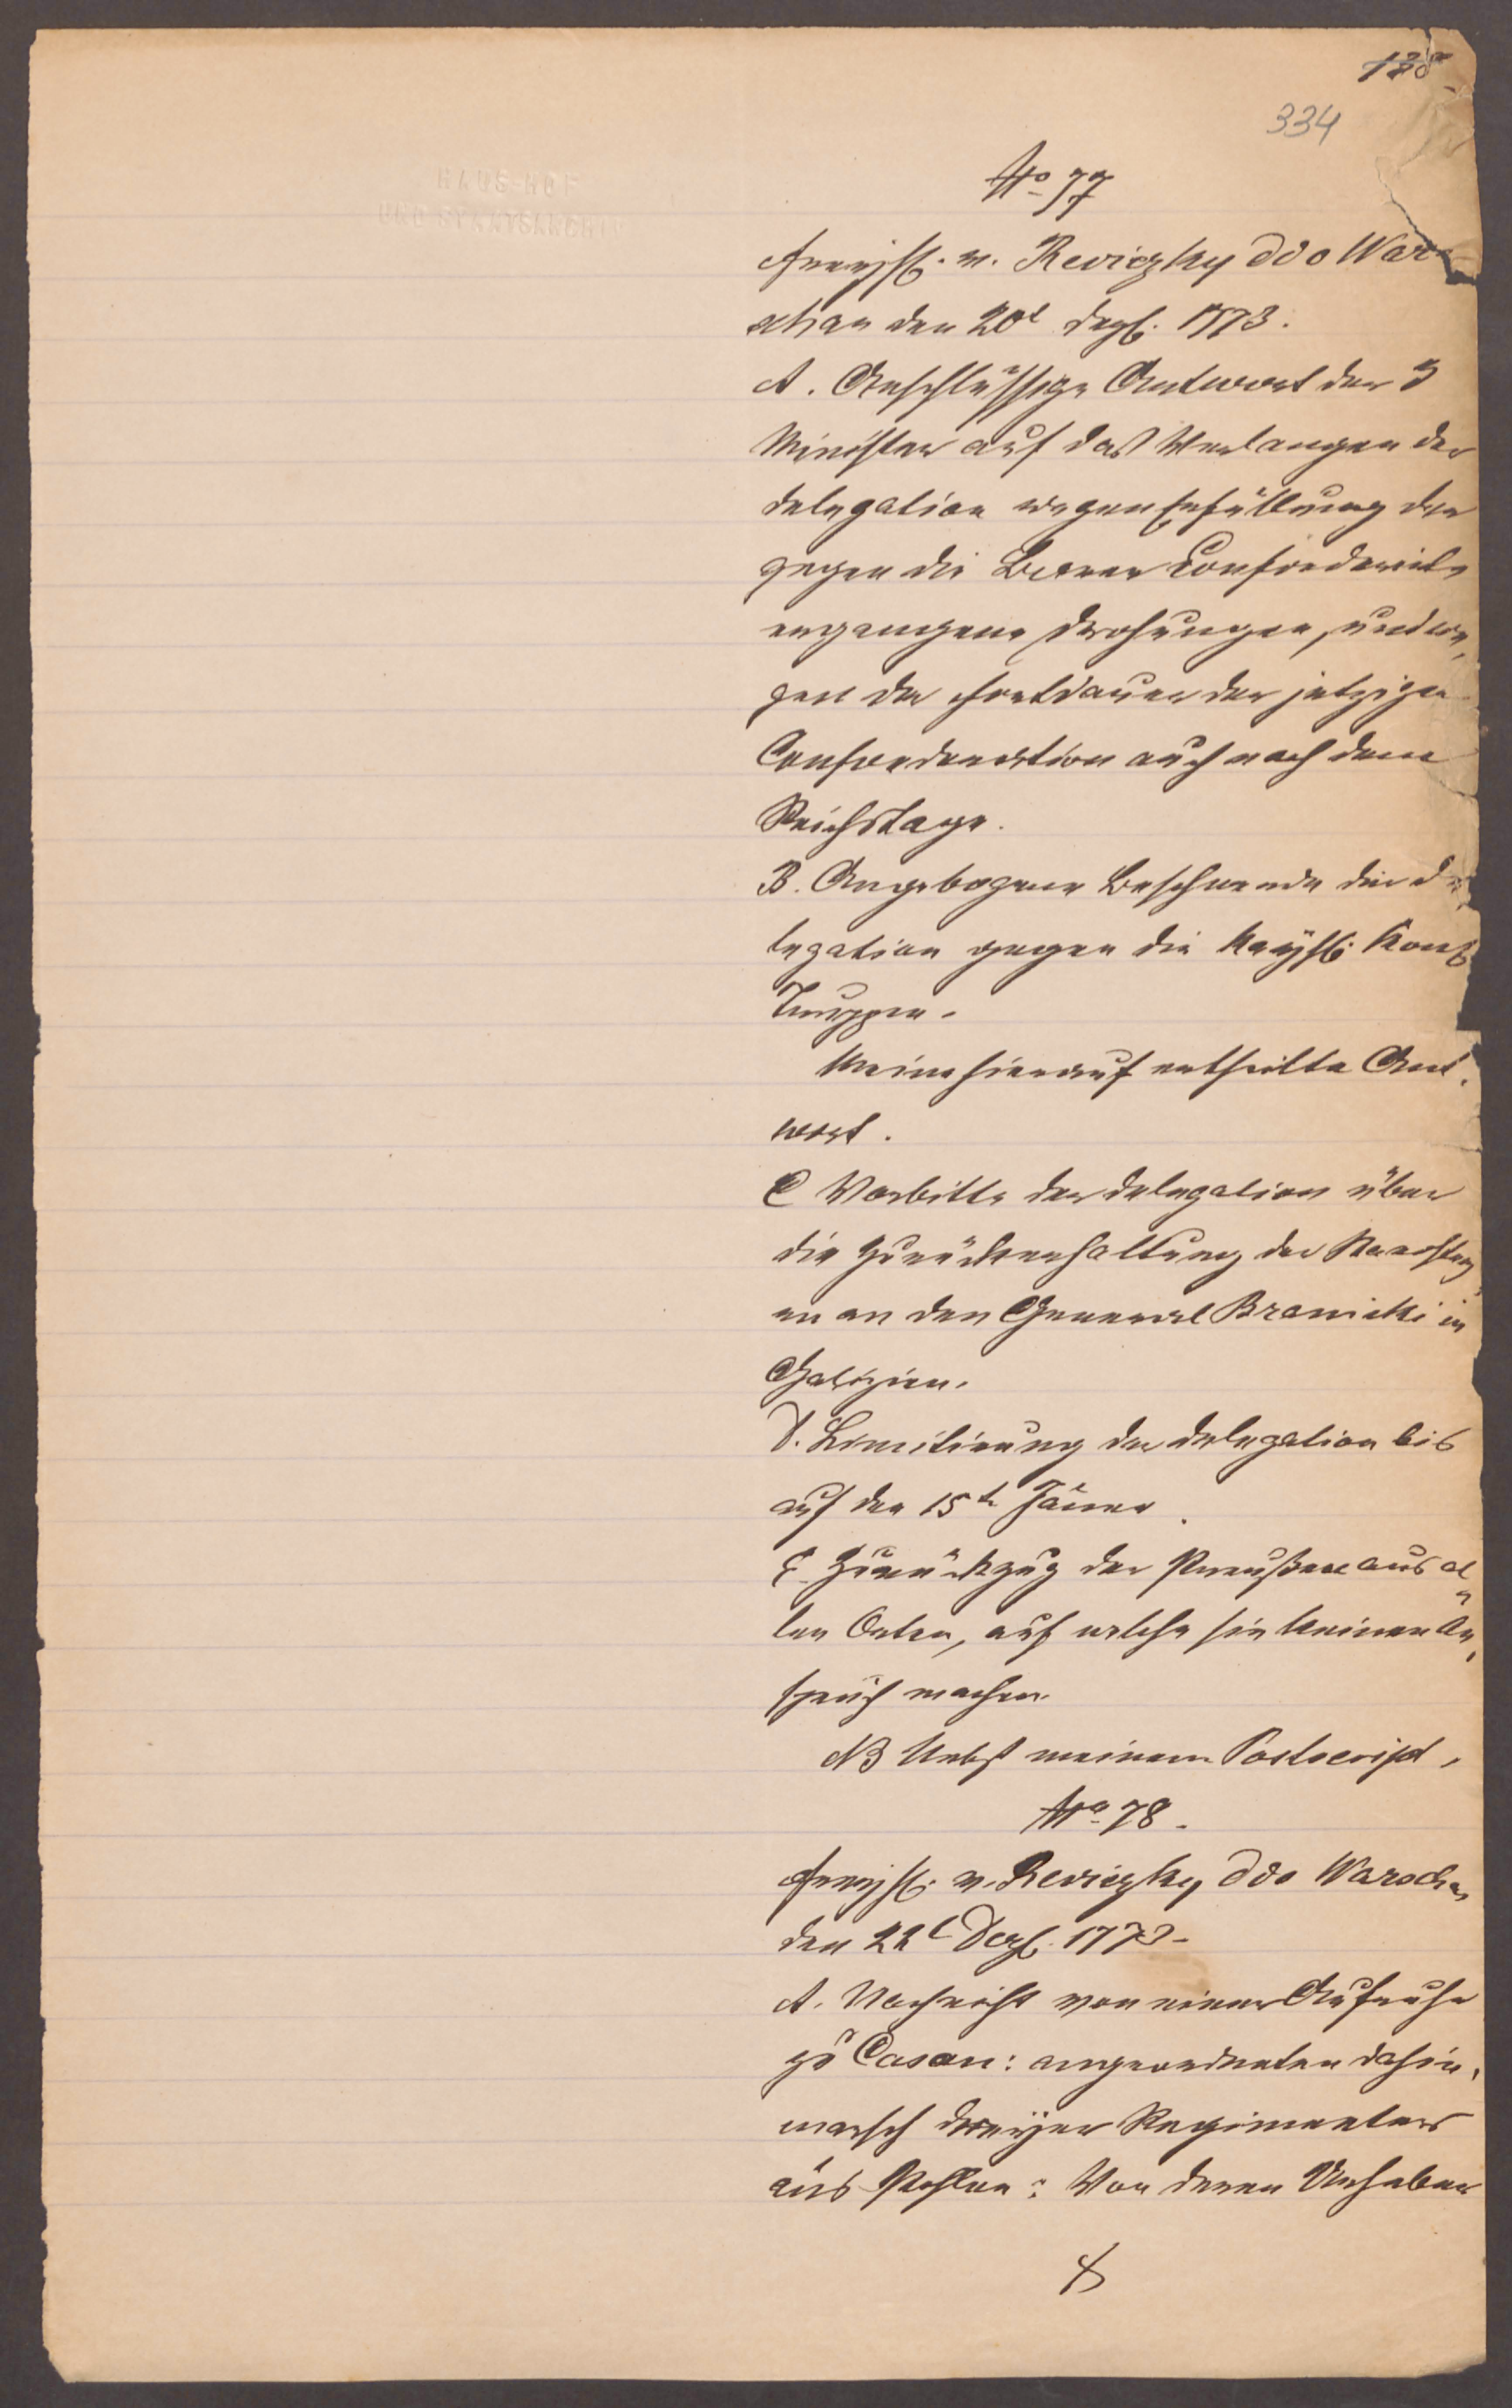 128
334
HAUS-HOF
UND STAATSARCHIV
No 77
Freyh. v. Reviczky ddo War-
schau den 20t Dezb. 1773.
A. Anschlüssige Antwort der 3
Minister auf das Verlangen der
Delegation wegen Erfüllung der
gegen die Barer Confoederirte
ergangene Drohungen, und we,
gen der Fortdauer der jetzigen
Confoederation auch nach dem
Reichstage.
B. Angebogene Beschwerde der De,
legation gegen die Kaysl. Königl
Truppen.
Meine hierauf ertheilte Ant,
wort.
C Vorbitte der Delegation über
die Zurückerhaltung der Starostey
en an den General Branicki in
Galizien.
D. Limitirung der Delegation bis
auf den 15te Jäner.
E. Zurückzug der Preußen aus al
len Orten, auf welche sie keinen An,
spruch machen.
NB Nebst meinem Postscript.
No 78.
Freyh. v. Reviczky ddo Warschau
den 22t Dezb. 1773.
A. Nachricht von einer Aufruhr
zu Casan: angeordneten dahin,
marsch dreyer Regimenter
aus Pohlen: Von deren Urheber